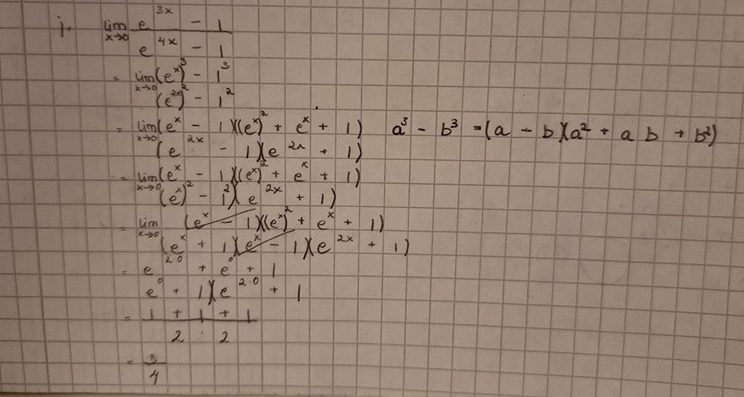 j. lim x→0 e^3x - 1
e^4x - 1
= lim x→0 (e^x)^3 - 1^3
(e^2x)^2 - 1^2
= lim x→0 (e^x - 1)((e^x)^2 + e^x + 1) a^3 - b^3 = (a - b)(a^2 + a b + b^2)
(e^2x - 1)(e^2x + 1)
= lim x→0 (e^x - 1)((e^x)^2 + e^x + 1)
(e^x)^2 - 1^2)(e^2x + 1)
= lim x→0 (e^x - 1)((e^x)^2 + e^x + 1)
(e^x + 1)(e^x - 1)(e^2x + 1)
= e^2·0 + e^0 + 1
e^0 + 1)(e^2·0 + 1
= 1 + 1 + 1
2 · 2
= 3
4